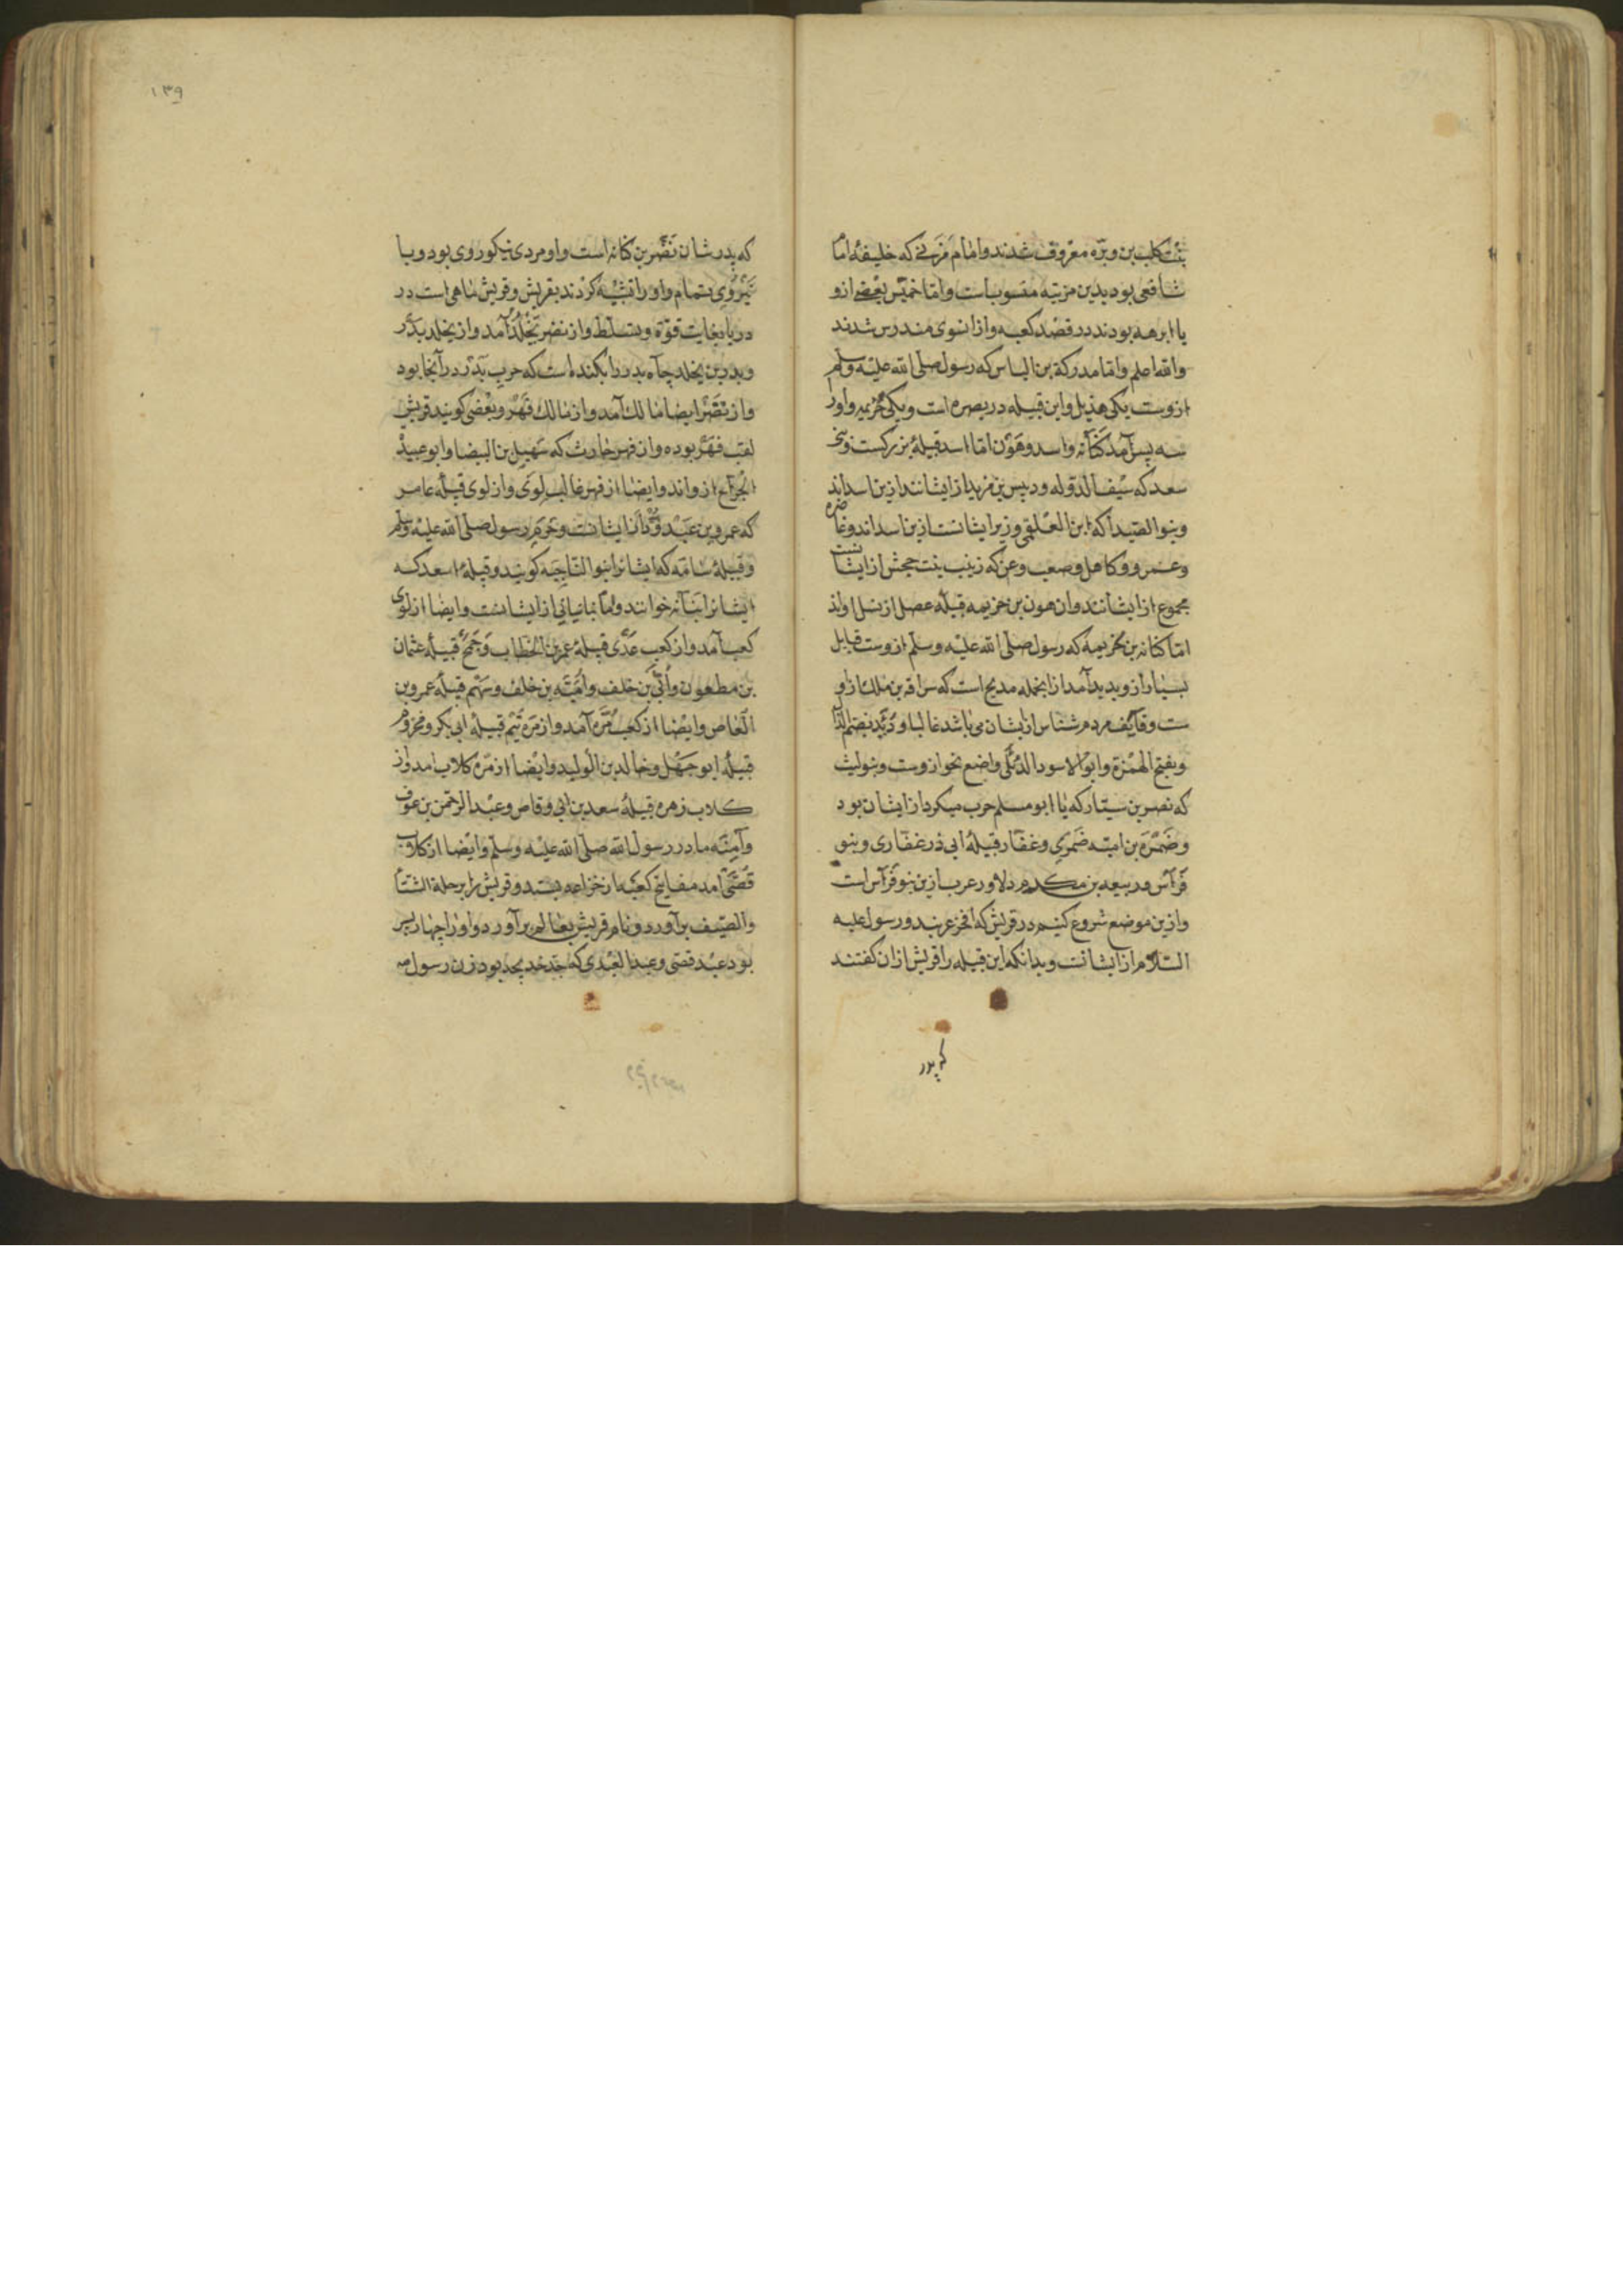 بنت کلب بن وبره معروف شدند و امام مزنی که خلیفهٔ امام
شافعی بود بدین مزینه منسوبست و اما خمیس بعضی ازو
با ابرهه بودند در قصد کعبه و از انسوی مندرس شدند
والله اعلم و اما مدرکة بن الیاس که رسول صلی الله علیه وسلم
ازوست یکی هذیل و این قبیله در بصره است و یکی خزیمه و اورا
سه پسر آمد کنانه و اسد و هون اما اسد قبیلهٔ بزرکست
سعد که سیف الدوله و دبیس بن مزید از ایشانند ازین اسداند
و بنو الصیدا که ابن العلقمی وزیر ایشانست ازین اسداند و غاضره
و عمرو و کاهل و صعب و عن که زینب بنت جحش از ایشانست
مجموع از ایشانند و ان هون بن خزیمه قبیلهٔ عضل از نسل اواند
اما کنانه بن خزیمه که رسول صلی الله علیه وسلم ازوست قبایل
بسیار ازو پدید آمد از انجمله مدلج است که سراقه بن ملک ازو
ست و قایف مردم شناس از یشان می باشد غالبا و دئل بضم الدال
و بفتح الهمزة و ابو الاسود الدئلی واضع نحو ازوست و بنو لیث
که نصر بن سیار که با ابو مسلم حرب میکرد از ایشان بود
و ضمره بن امیه ضمری و غفار قبیلهٔ ابی ذر غفاری و بنو
فرآس و ربیعه بن مکدم دلاور عرب ازین بنو فرآس است
و ازین موضع شروع کنیم در قریش که افخر عربند و رسول علیه
السلام از ایشانست و بدانکه این قبیله را قریش از ان کفتند
که پدر
۱۳۹
که پدر شان نضر بن کنانه است و او مردی نیکو روی بود و با
نیروی بتمام و او را تشبیه کردند بقریش و قریش ماهی است در
دریا بغایت قوة و تسلط و از نضر یخلد آمد و از یخلد بدر
و بدر بن یخلد چآه بدر را بکنده است که حرب بدر در آنجا بود
و از نضر ایضا مالک آمد و از مالک فهر و بعضی کویند قریش
لقب فهر بوده و از فهر حارث که سهیل بن البیضا و ابو عبیدة
الجراح ازواند و ایضا از فهر غالب لوی و از لوی قبیلهٔ عامر
که عمرو بن عبد ود از ایشانست و حرم رسول صلی الله علیه وسلم
و قبیلهٔ سامه که ایشانرا بنو الناجیه کویند و قبیلهٔ سعد که
ایشانرا بنآنه خوانند و اما بنانیانی از ایشانست و ایضا از لوی
کعب آمد و از کعب عدی قبیلهٔ عمر بن الخطاب و جمح قبیلهٔ عثمان
بن مطعون و ابی بن خلف و امیه بن خلف و سهم قبیلهٔ عمرو بن
العاص و ایضا از کعب مره آمد و از مره تیم قبیلهٔ ابی بکر و مخزوم
قبیلهٔ ابو جهل و خالد بن الولید و ایضا از مره کلاب امد و از
کلاب زهره قبیلهٔ سعد بن ابی وقاص و عبد الرحمن بن عوف
و آمنه مادر رسول الله صلی الله علیه وسلم و ایضا از کلاب
قصی امد مفاتیح کعبه از خزاعه بستد و قریش را برحلة الشتآ
والصیف برآورد و نام قریش بعالم برآورد و او را چهار پسر
بود عبد قصی و عبد العبدی که جد خدیجه بود زن رسول صه